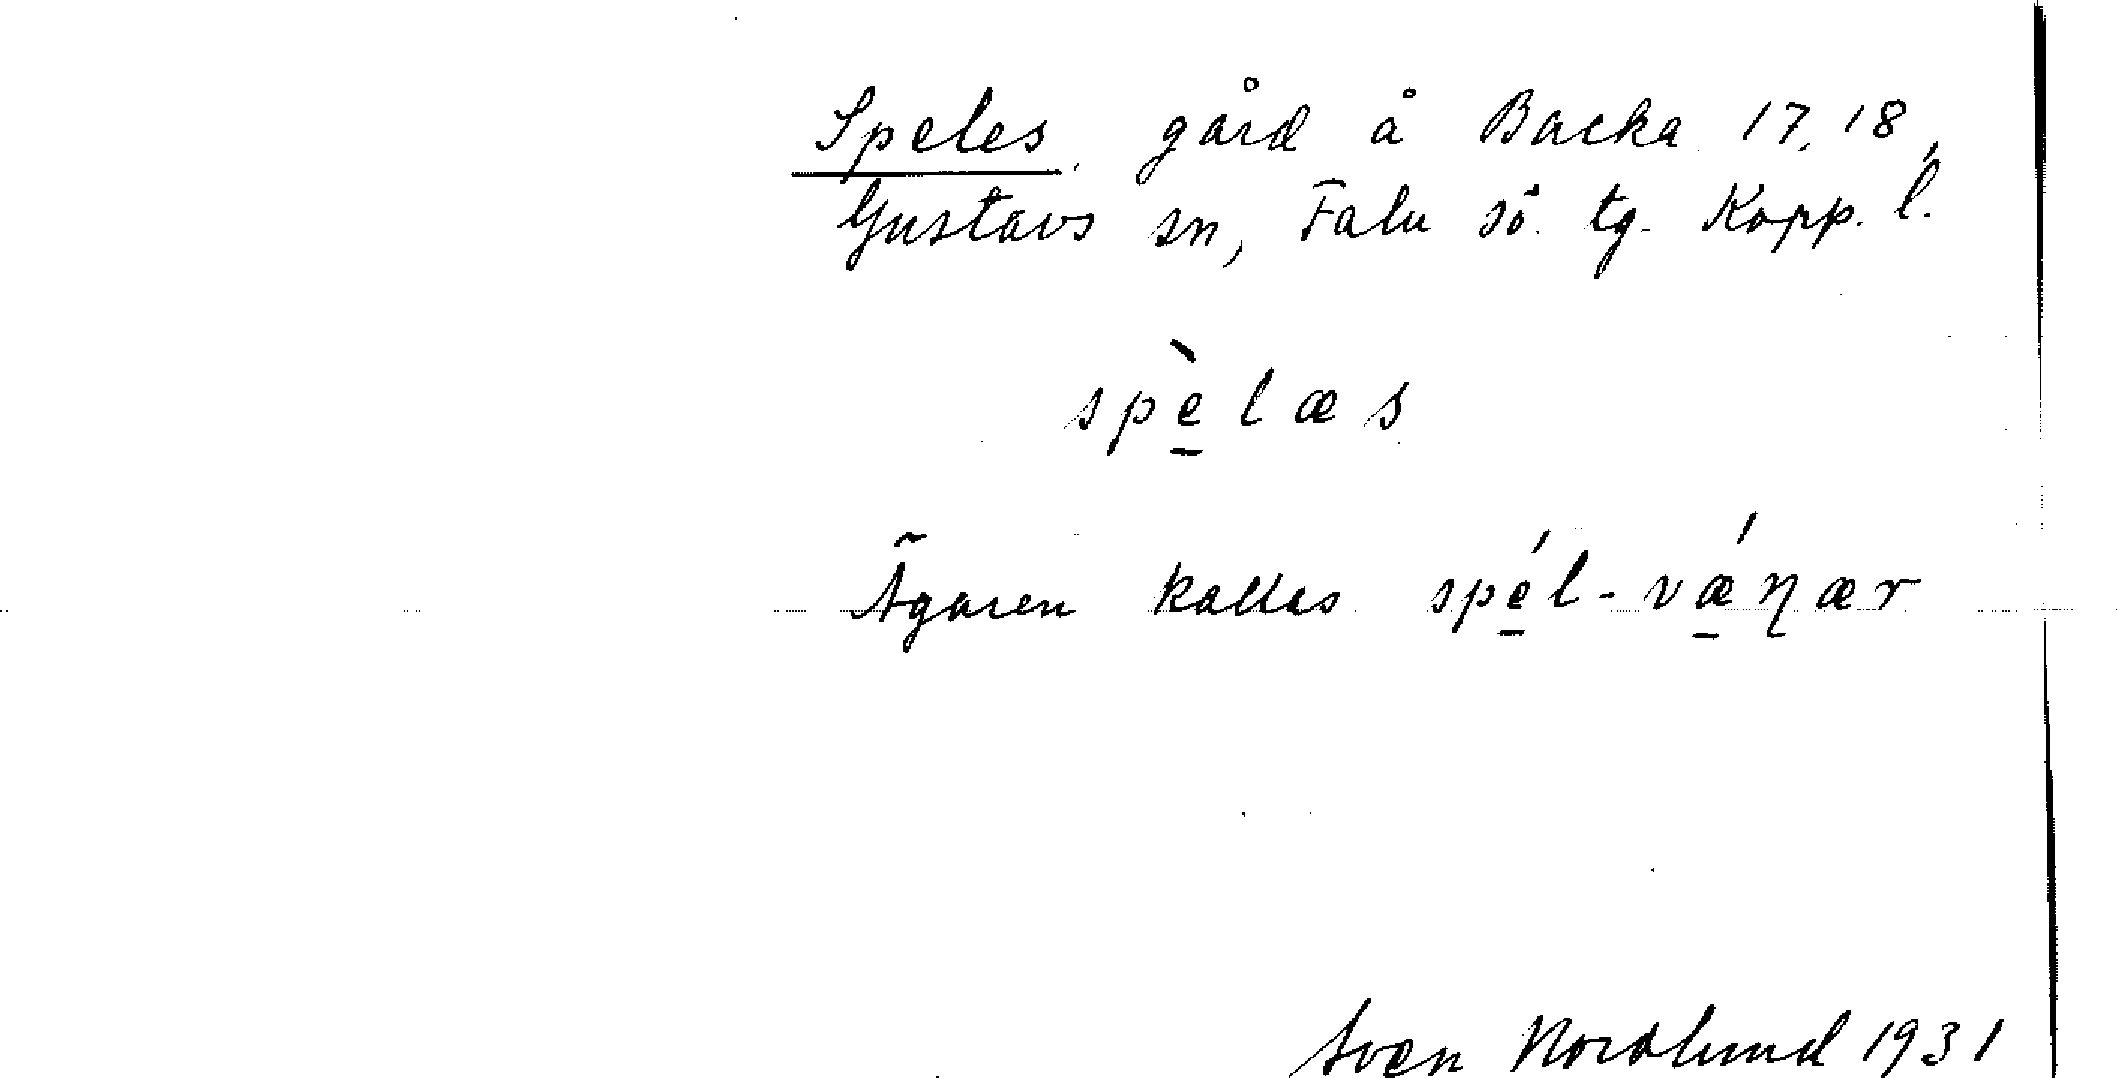 Speles, gård å Backa 17, 18,
Gustavs sn, Falu sö. tg. Kopp. l.
spè̠læs
Ägaren kallas spé̠l-vǽ̠ŋær
Sven Nordlund 1931